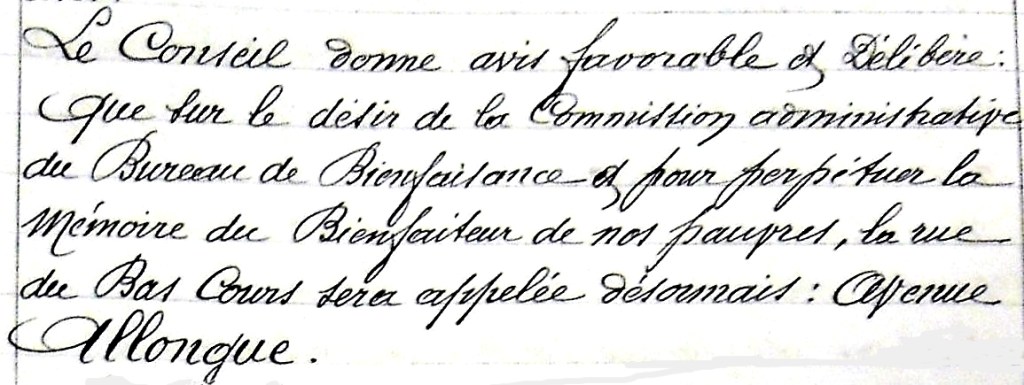 Le Conseil donne avis favorable et Délibère :
Que sur le désir de la Commission administrative
du Bureau de Bienfaisance et pour perpétuer la
Mémoire du Bienfaiteur de nos pauvres, la rue
du Bas Cours sera appelée désormais : Avenue
Allongue.